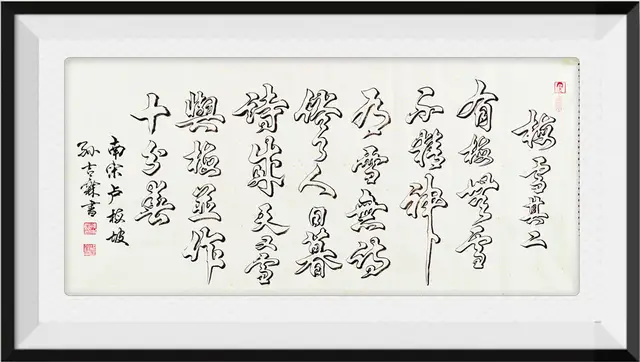 梅雪其二
有梅無雪
不精神
有雪無诗
俗了人日暮
诗成天又雪
與梅並作
十分春
南宋卢梅坡
孙吉霖书